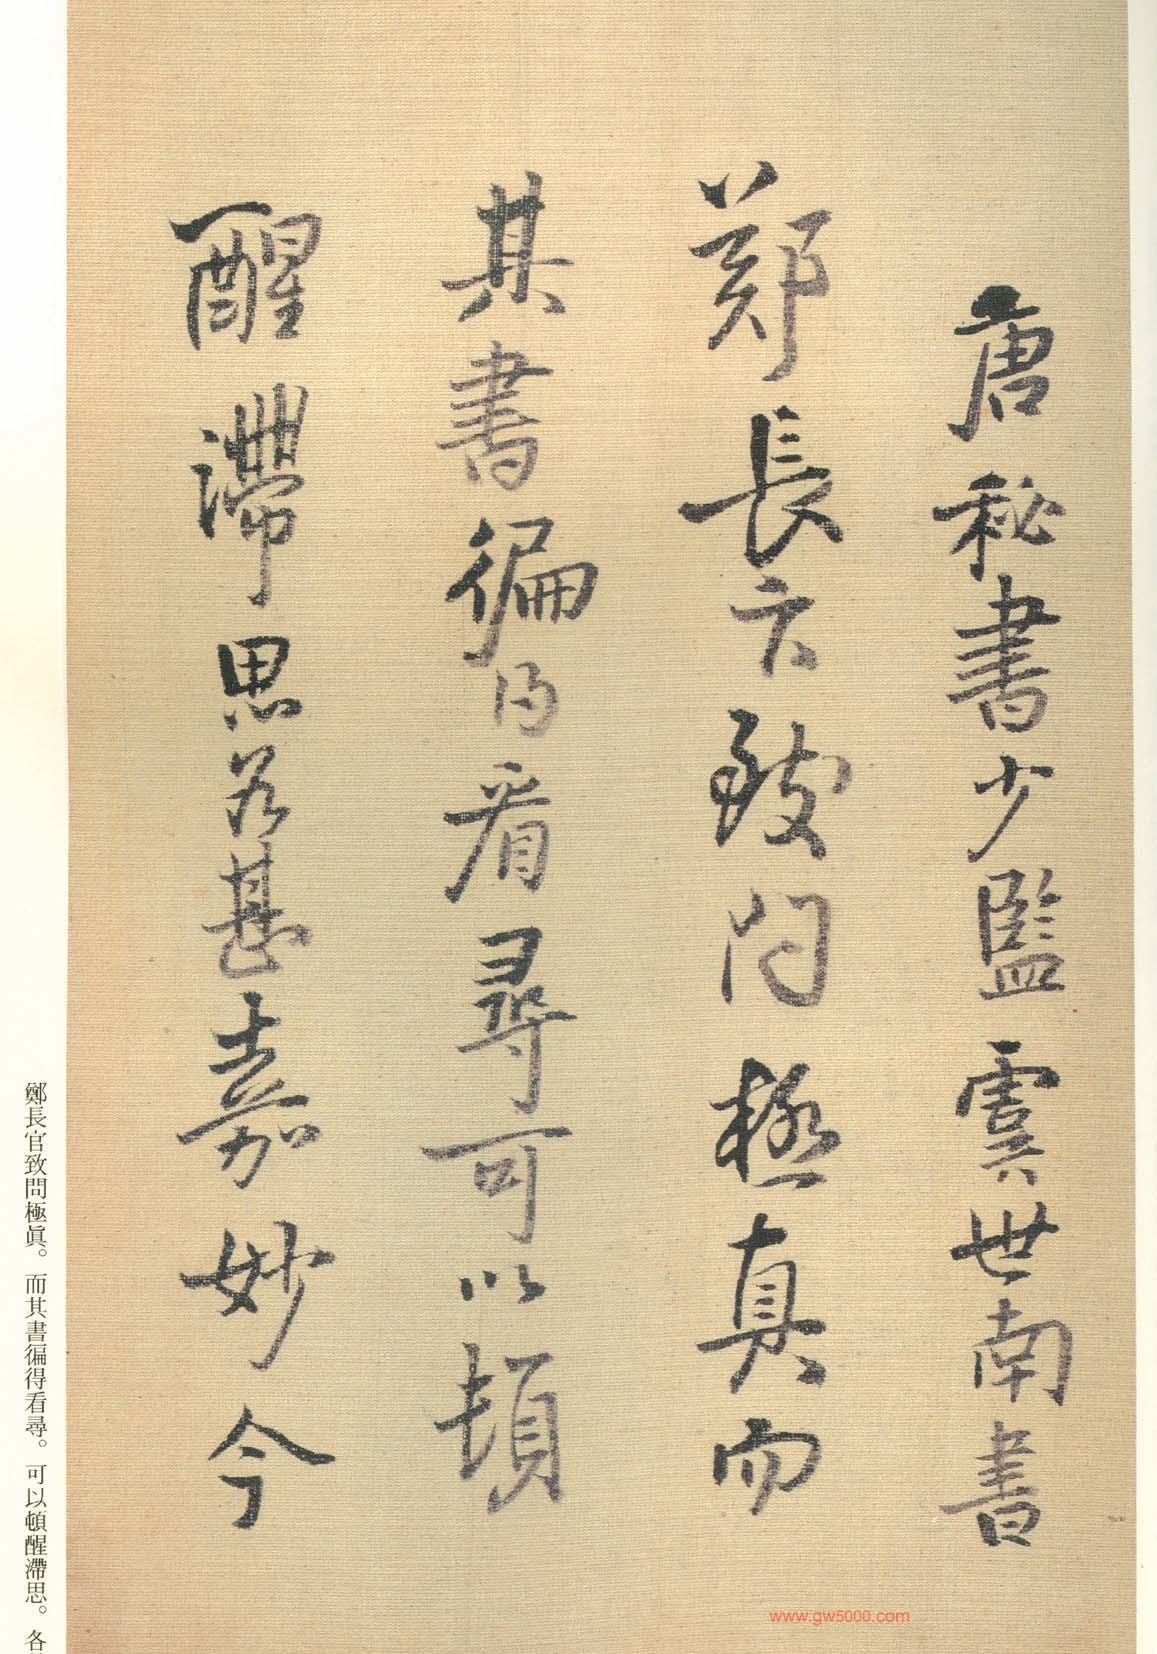 唐秘書少監虞世南書
鄭長官致問極真而
其書徧得看尋可以頓
醒滯思各甚嘉妙今
鄭長官致問極眞。而其書徧得看尋。可以頓醒滯思。各
www.gw5000.com